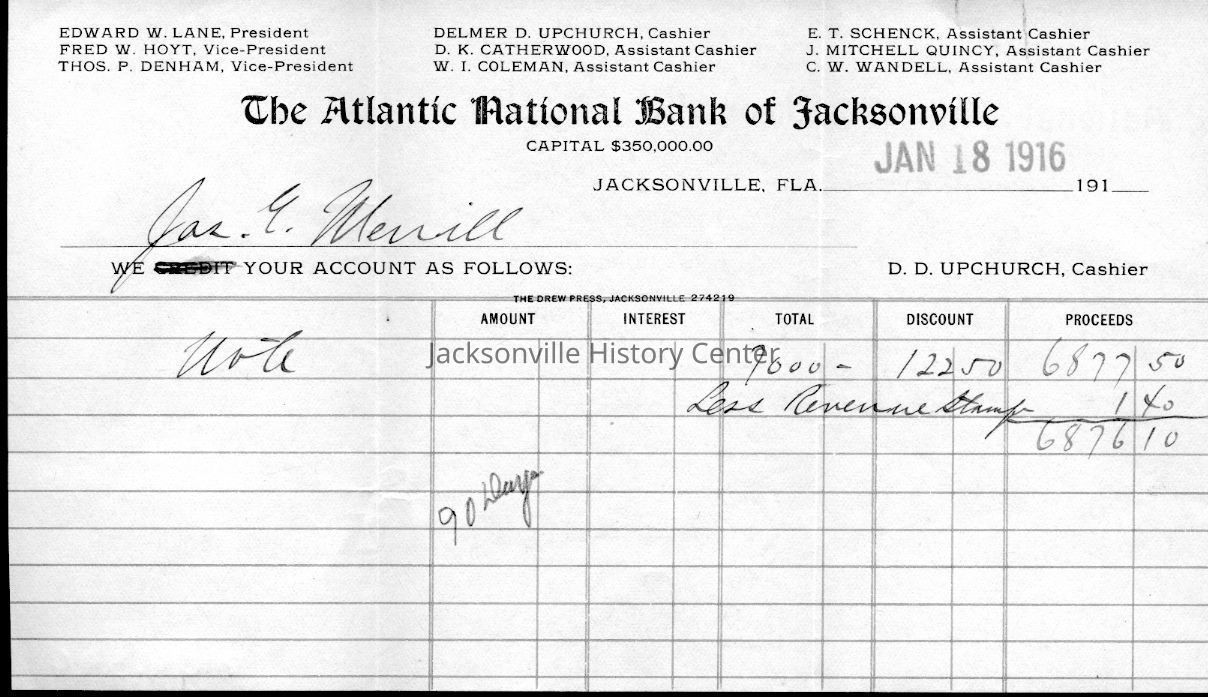 EDWARD W. LANE, President
FRED W. HOYT, Vice-President
THOS. P. DENHAM, Vice-President
DELMER D. UPCHURCH, Cashier
D. K. CATHERWOOD, Assistant Cashier
W. I. COLEMAN, Assistant Cashier
E. T. SCHENCK, Assistant Cashier
J. MITCHELL QUINCY, Assistant Cashier
C. W. WANDELL, Assistant Cashier
The Atlantic National Bank of Jacksonville
CAPITAL $350,000.00
JAN 18 1916
JACKSONVILLE, FLA. 191
Jas. E. Merrill
WE CREDIT YOUR ACCOUNT AS FOLLOWS:
D. D. UPCHURCH, Cashier
THE DREW PRESS, JACKSONVILLE 274219
AMOUNT INTEREST TOTAL DISCOUNT PROCEEDS
Jacksonville History Center
Note 7000 - 122 50 6877 50
Less Revenue Stamps 1 40
6876 10
90 Days